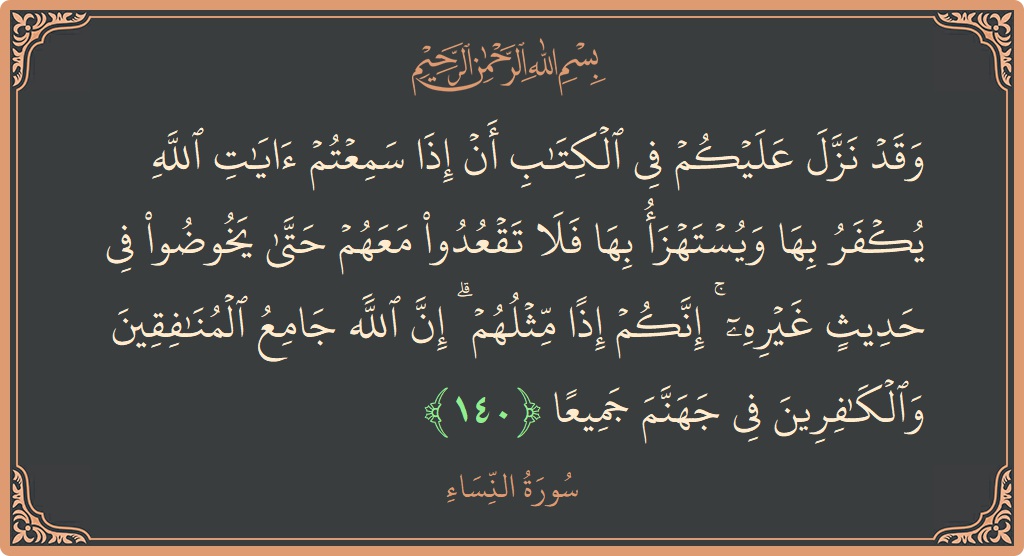 بِسْمِ اللهِ الرَّحْمٰنِ الرَّحِيْمِ
وَقَدۡ نَزَّلَ عَلَيۡكُمۡ فِي ٱلۡكِتَٰبِ أَنۡ إِذَا سَمِعۡتُمۡ ءَايَٰتِ ٱللَّهِ
يُكۡفَرُ بِهَا وَيُسۡتَهۡزَأُ بِهَا فَلَا تَقۡعُدُواْ مَعَهُمۡ حَتَّىٰ يَخُوضُواْ فِي
حَدِيثٍ غَيۡرِهِۦٓ ۚ إِنَّكُمۡ إِذٗا مِّثۡلُهُمۡ ۗ إِنَّ ٱللَّهَ جَامِعُ ٱلۡمُنَٰفِقِينَ
وَٱلۡكَٰفِرِينَ فِي جَهَنَّمَ جَمِيعًا ﴿١٤٠﴾
سُورَةُ النِّسَاءِ